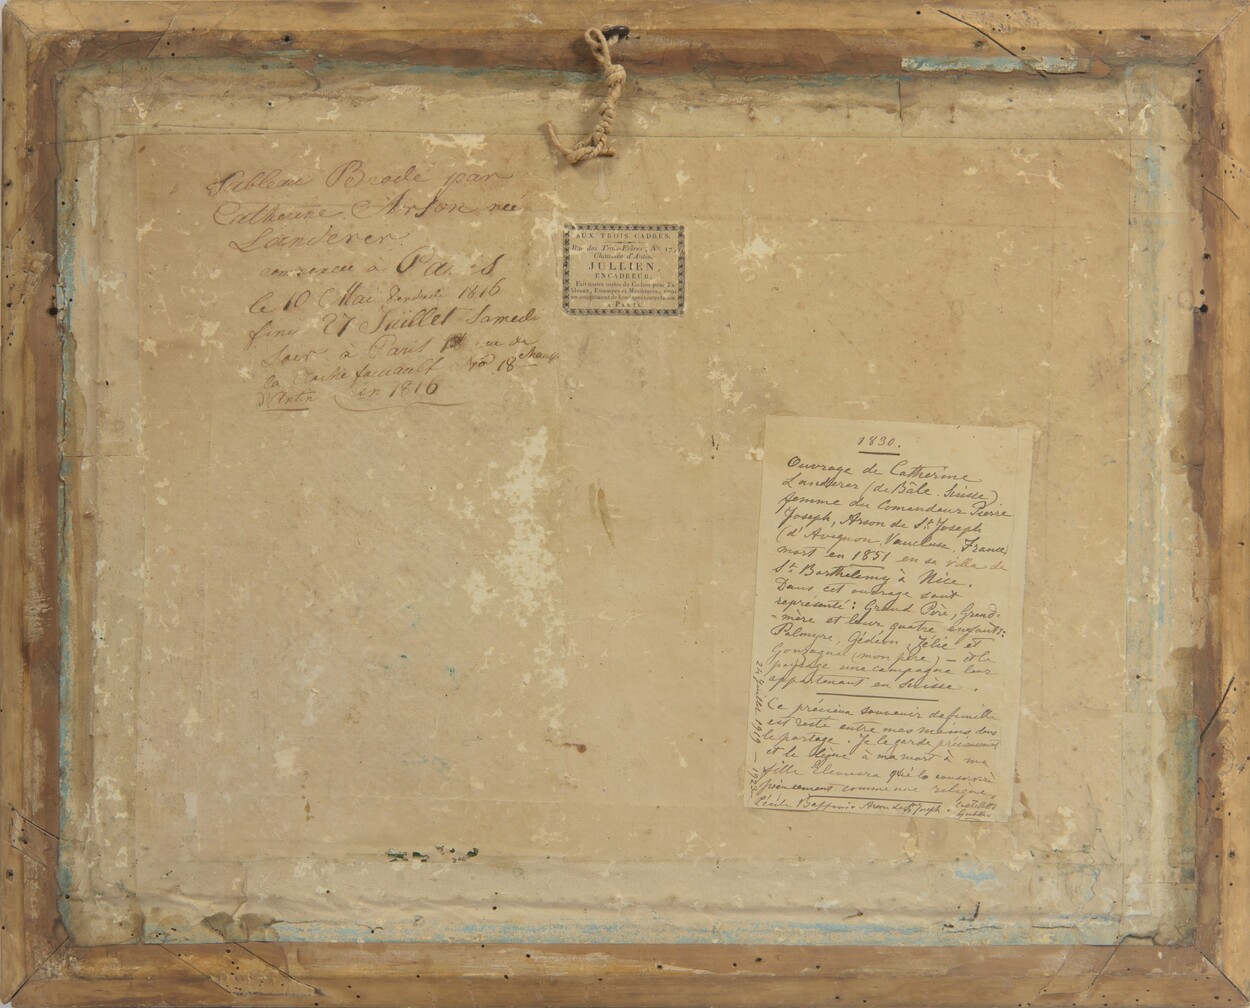 Tableau Brodé par
Catherine Arson née
Landerer
commencée à Paris
le 10 Mai 1816
fini 27 Juillet Samedi
Soir à Paris rue de
la Rochefoucault No 18
d'Antin en 1816
AUX TROIS CADRES.
Rue des Trois-Frères, N.
Chaussée d'Antin.
JULLIEN,
ENCADREUR,
Fait toutes sortes de Cadres pour Ta-
bleaux, Estampes et Miniatures,
A PARIS.
1830.
Ouvrage de Catherine
Landerer (de Bâle. Suisse)
femme du Comandeur Pierre
Joseph, Arson de St. Joseph
(d'Avignon, Vaucluse, France)
mort en 1851 en sa villa de
St. Barthelemy à Nice.
Dans cet ouvrage sont
représenté: Grand Père, Grand-
-mère et leur quatre enfants:
Palmyre, Gédéon, Zélie et
Gonzague (mon père) — et le
paysage une campagne leur
appartenant en Suisse.
Ce précieux souvenir de famille
est resté entre mes mains dans
le partage. Je le garde précieusement
et le lègue à ma mort à ma
fille Eleonora qui le conservera
précieusement comme une relique.
Cécile Arson de St. Joseph.
24 Juillet 1919 — 1923